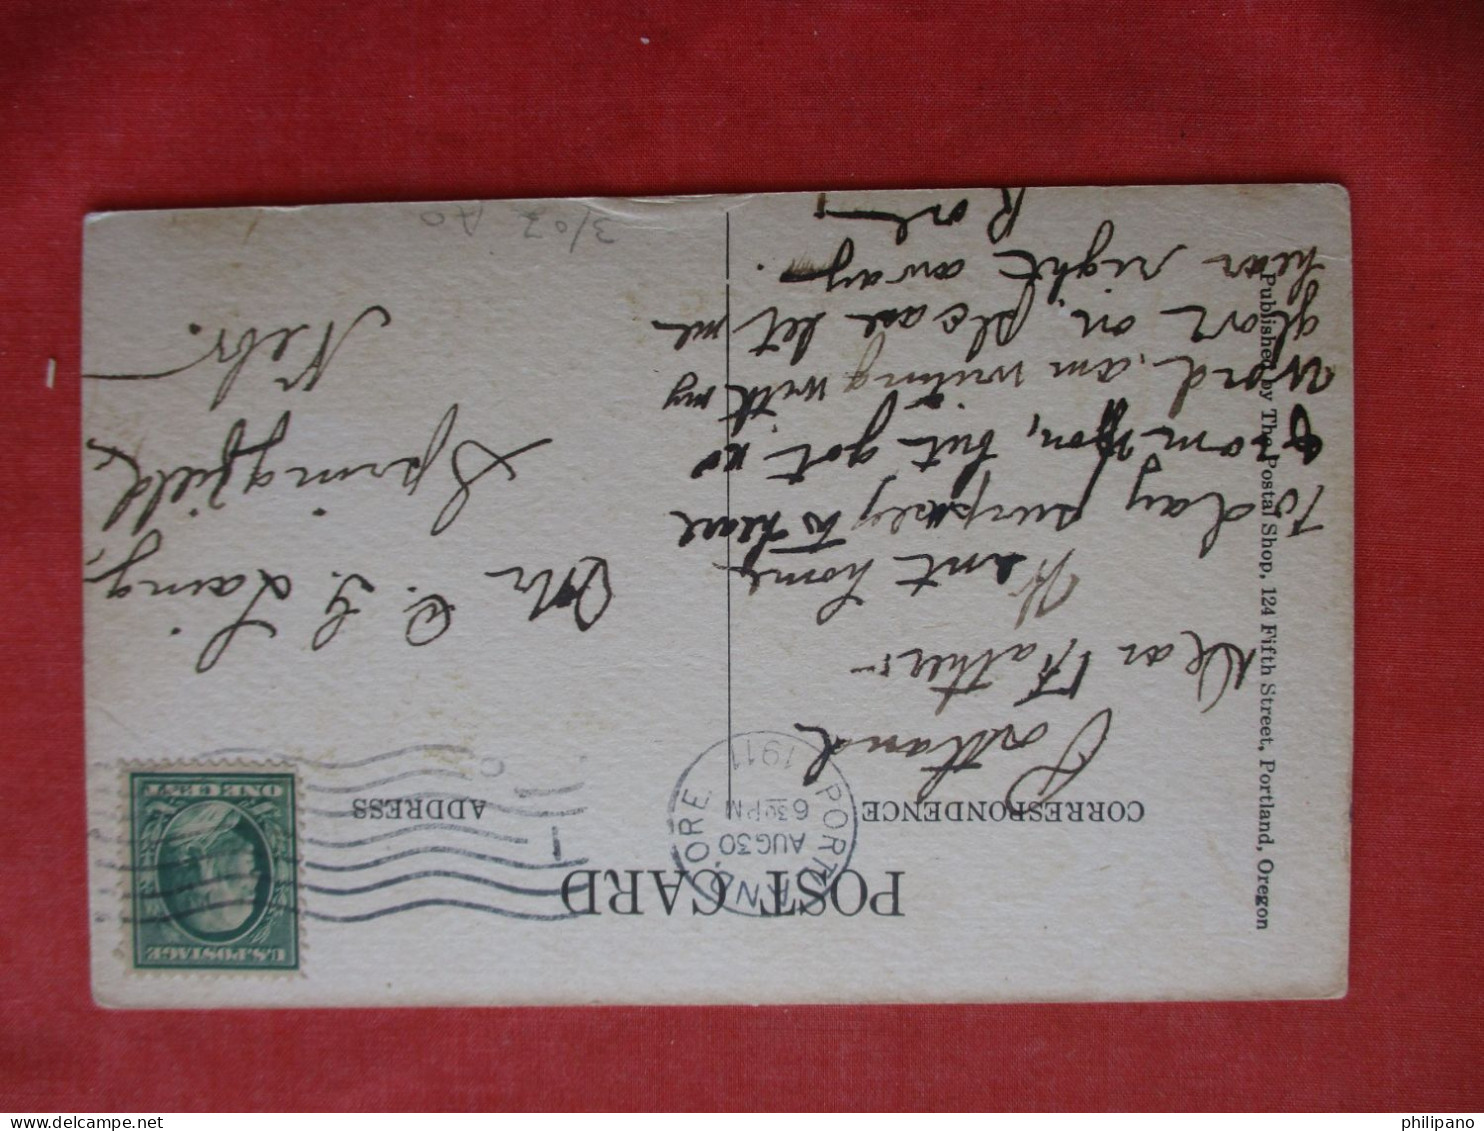 POST CARD
CORRESPONDENCE
ADDRESS
PORTLAND, ORE.
AUG 30
6 30 PM
1911
U.S. POSTAGE
ONE CENT
Published by The Postal Shop, 124 Fifth Street, Portland, Oregon
Portland
Dear Father –
Went home
To day purpsley to heare
from you, but got no
word. am writing with my
glov on, please let me
hear right away.
Mr C. G. Laing,
Springfield,
Nebr.
3/02 AO
philipano